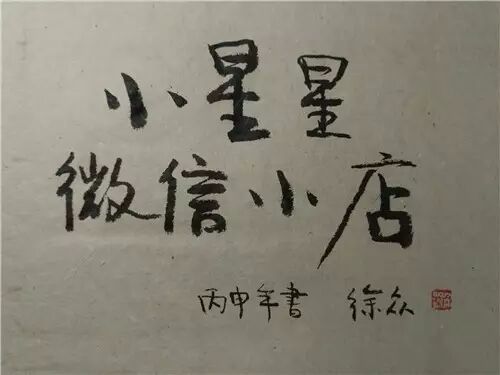 小星星
微信小店
丙申年書 徐众